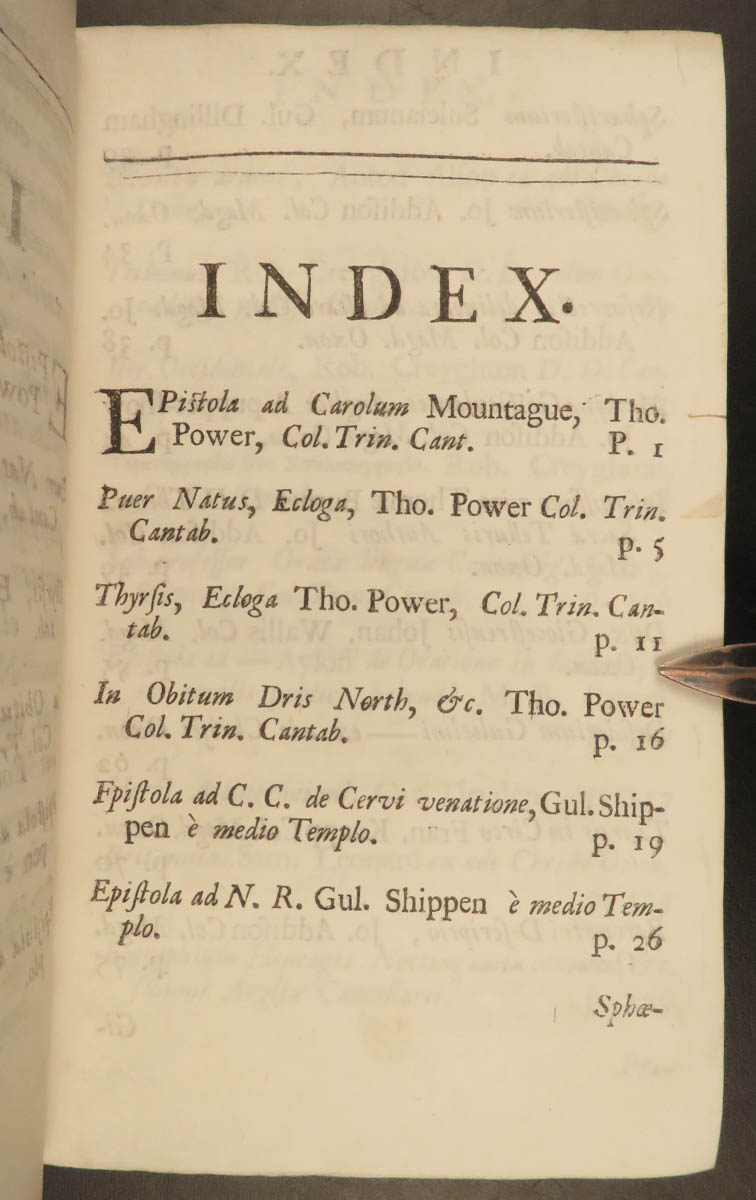 INDEX.
EPistola ad Carolum Mountague, Tho.
Power, Col. Trin. Cant. P. 1
Puer Natus, Ecloga, Tho. Power Col. Trin.
Cantab. p. 5
Thyrſis, Ecloga Tho. Power, Col. Trin. Can-
tab. p. 11
In Obitum Dris North, &c. Tho. Power
Col. Trin. Cantab. p. 16
Epiſtola ad C. C. de Cervi venatione, Gul. Ship-
pen è medio Templo. p. 19
Epiſtola ad N. R. Gul. Shippen è medio Tem-
plo. p. 26
Sphœ-